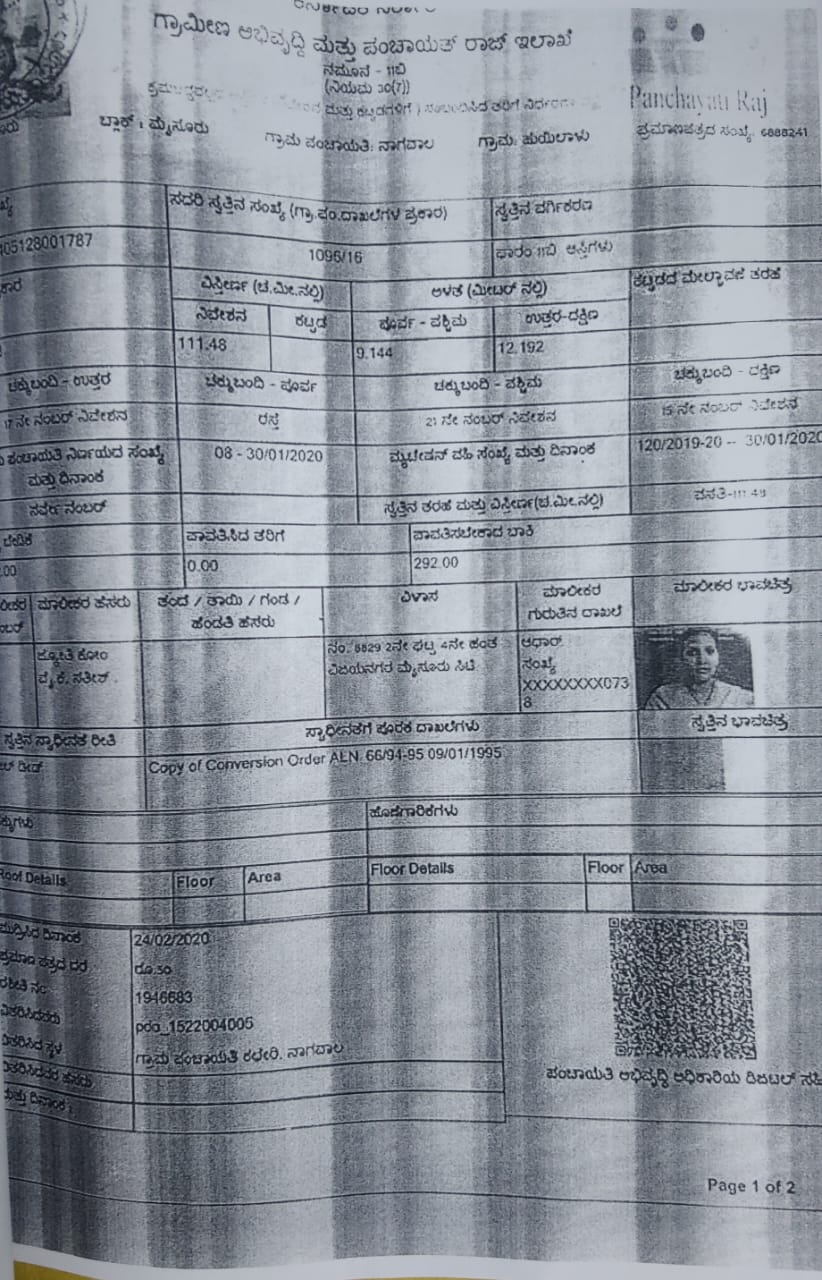 ಗ್ರಾಮೀಣ ಅಭಿವೃದ್ಧಿ ಮತ್ತು ಪಂಚಾಯತ್ ರಾಜ್ ಇಲಾಖೆ
ನಮೂನೆ - 11ಬಿ
(ನಿಯಮ 30(7))
ಮತ್ತು ಕಟ್ಟಡಗಳಿಗೆ ) ಸಂಬಂಧಿಸಿದ ತೆರಿಗೆ
Panchayati Raj
ಬ್ಲಾಕ್ : ಮೈಸೂರು ಗ್ರಾಮ ಪಂಚಾಯತಿ: ನಾಗವಾಲ ಗ್ರಾಮ: ಹುಯಿಲಾಳು ಪ್ರಮಾಣಪತ್ರದ ಸಂಖ್ಯೆ: 6888241
ಸದರಿ ಸ್ವತ್ತಿನ ಸಂಖ್ಯೆ (ಗ್ರಾ.ಪಂ.ದಾಖಲೆಗಳ ಪ್ರಕಾರ) ಸ್ವತ್ತಿನ ವರ್ಗೀಕರಣ
05128001787 1096/16 ಫಾರಂ 11ಬಿ ಆಸ್ತಿಗಳು
ವಿಸ್ತೀರ್ಣ (ಚ.ಮೀ.ನಲ್ಲಿ) ಅಳತೆ (ಮೀಟರ್ ನಲ್ಲಿ) ಕಟ್ಟಡದ ಮೇಲ್ಛಾವಣಿ ತರಹೆ
ನಿವೇಶನ ಕಟ್ಟಡ ಪೂರ್ವ - ಪಶ್ಚಿಮ ಉತ್ತರ-ದಕ್ಷಿಣ
111.48 9.144 12.192
ಚಕ್ಕುಬಂದಿ - ಉತ್ತರ ಚಕ್ಕುಬಂದಿ - ಪೂರ್ವ ಚಕ್ಕುಬಂದಿ - ಪಶ್ಚಿಮ ಚಕ್ಕುಬಂದಿ - ದಕ್ಷಿಣ
17 ನೇ ನಂಬರ್ ನಿವೇಶನ ರಸ್ತೆ 21 ನೇ ನಂಬರ್ ನಿವೇಶನ 15 ನೇ ನಂಬರ್ ನಿವೇಶನ
ಪಂಚಾಯತಿ ನಿರ್ಣಯದ ಸಂಖ್ಯೆ 08 - 30/01/2020 ಮ್ಯುಟೇಷನ್ ವಹಿ ಸಂಖ್ಯೆ ಮತ್ತು ದಿನಾಂಕ 120/2019-20 -- 30/01/2020
ಮತ್ತು ದಿನಾಂಕ
ಸರ್ವೆ ನಂಬರ್ ಸ್ವತ್ತಿನ ತರಹೆ ಮತ್ತು ವಿಸ್ತೀರ್ಣ(ಚ.ಮೀ.ನಲ್ಲಿ) ವಸತಿ-111.48
ಬೇಡಿಕೆ ಪಾವತಿಸಿದ ತೆರಿಗೆ ಪಾವತಿಸಬೇಕಾದ ಬಾಕಿ
.00 0.00 292.00
ಮಾಲೀಕರ ಹೆಸರು ತಂದೆ / ತಾಯಿ / ಗಂಡ / ವಿಳಾಸ ಮಾಲೀಕರ ಮಾಲೀಕರ ಭಾವಚಿತ್ರ
ಹೆಂಡತಿ ಹೆಸರು ಗುರುತಿನ ದಾಖಲೆ
ಜ್ಯೋತಿ ಕೋಂ ನಂ. 6829 2ನೇ ಘಟ್ಟ 4ನೇ ಹಂತ ಆಧಾರ್
ವೈ.ಕೆ. ಸತೀಶ್ ವಿಜಯನಗರ ಮೈಸೂರು ಸಿಟಿ ಸಂಖ್ಯೆ
XXXXXXXX073
8
ಸ್ವತ್ತಿನ ಸ್ವಾಧೀನತೆ ರೀತಿ ಸ್ವಾಧೀನತೆಗೆ ಪೂರಕ ದಾಖಲೆಗಳು ಸ್ವತ್ತಿನ ಭಾವಚಿತ್ರ
ಡೀಡ್ Copy of Conversion Order ALN 66/94-95 09/01/1995
ಹೊಣೆಗಾರಿಕೆಗಳು
Roof Details Floor Area Floor Details Floor Area
ಮುದ್ರಿಸಿದ ದಿನಾಂಕ 24/02/2020
ಪ್ರಮಾಣ ಪತ್ರದ ದರ ರೂ.50
ರಶೀತಿ ನಂ 1946683
ವಿತರಿಸಿದವರು pdo_1522004005
ವಿತರಿಸಿದ ಸ್ಥಳ ಗ್ರಾಮ ಪಂಚಾಯತಿ ಕಛೇರಿ, ನಾಗವಾಲ
ವಿತರಿಸಿದವರ ಹೆಸರು
ಮತ್ತು ದಿನಾಂಕ :
ಪಂಚಾಯತಿ ಅಭಿವೃದ್ಧಿ ಅಧಿಕಾರಿಯ ಡಿಜಿಟಲ್ ಸಹಿ
Page 1 of 2